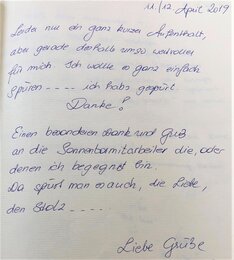 11./12. April 2019
Leider nur ein ganz kurzer Aufenthalt,
aber gerade deshalb umso wertvoller
für mich. Ich wollte es ganz einfach
spüren ---- ich hab's gespürt.
Danke!
Einen besonderen Dank und Gruß
an die Sonnentormitarbeiter die, oder
denen ich begegnet bin.
Da spürt man es auch, die Liebe,
den Stolz -----.
Liebe Grüße